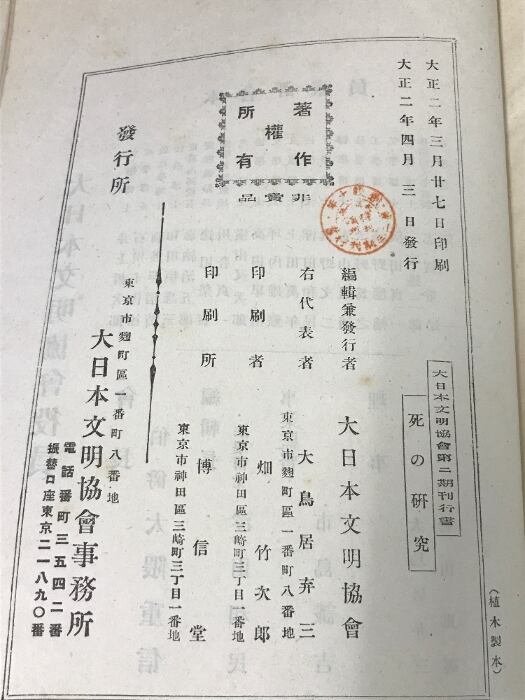 大正二年三月廿七日印刷
大正二年四月三日發行
大日本文明協會第二期刊行書
死の研究
(植木製本)
著作
權
所有
非賣品
編輯兼發行者 大日本文明協會
右代表者 大鳥居弃三
東京市麴町區一番町八番地
印刷者 畑竹次郎
東京市神田區三崎町三丁目一番地
印刷所 博信堂
東京市神田區三崎町三丁目一番地
發行所
東京市麴町區一番町八番地
大日本文明協會事務所
電話番町三五四二番
振替口座東京二一八九〇番